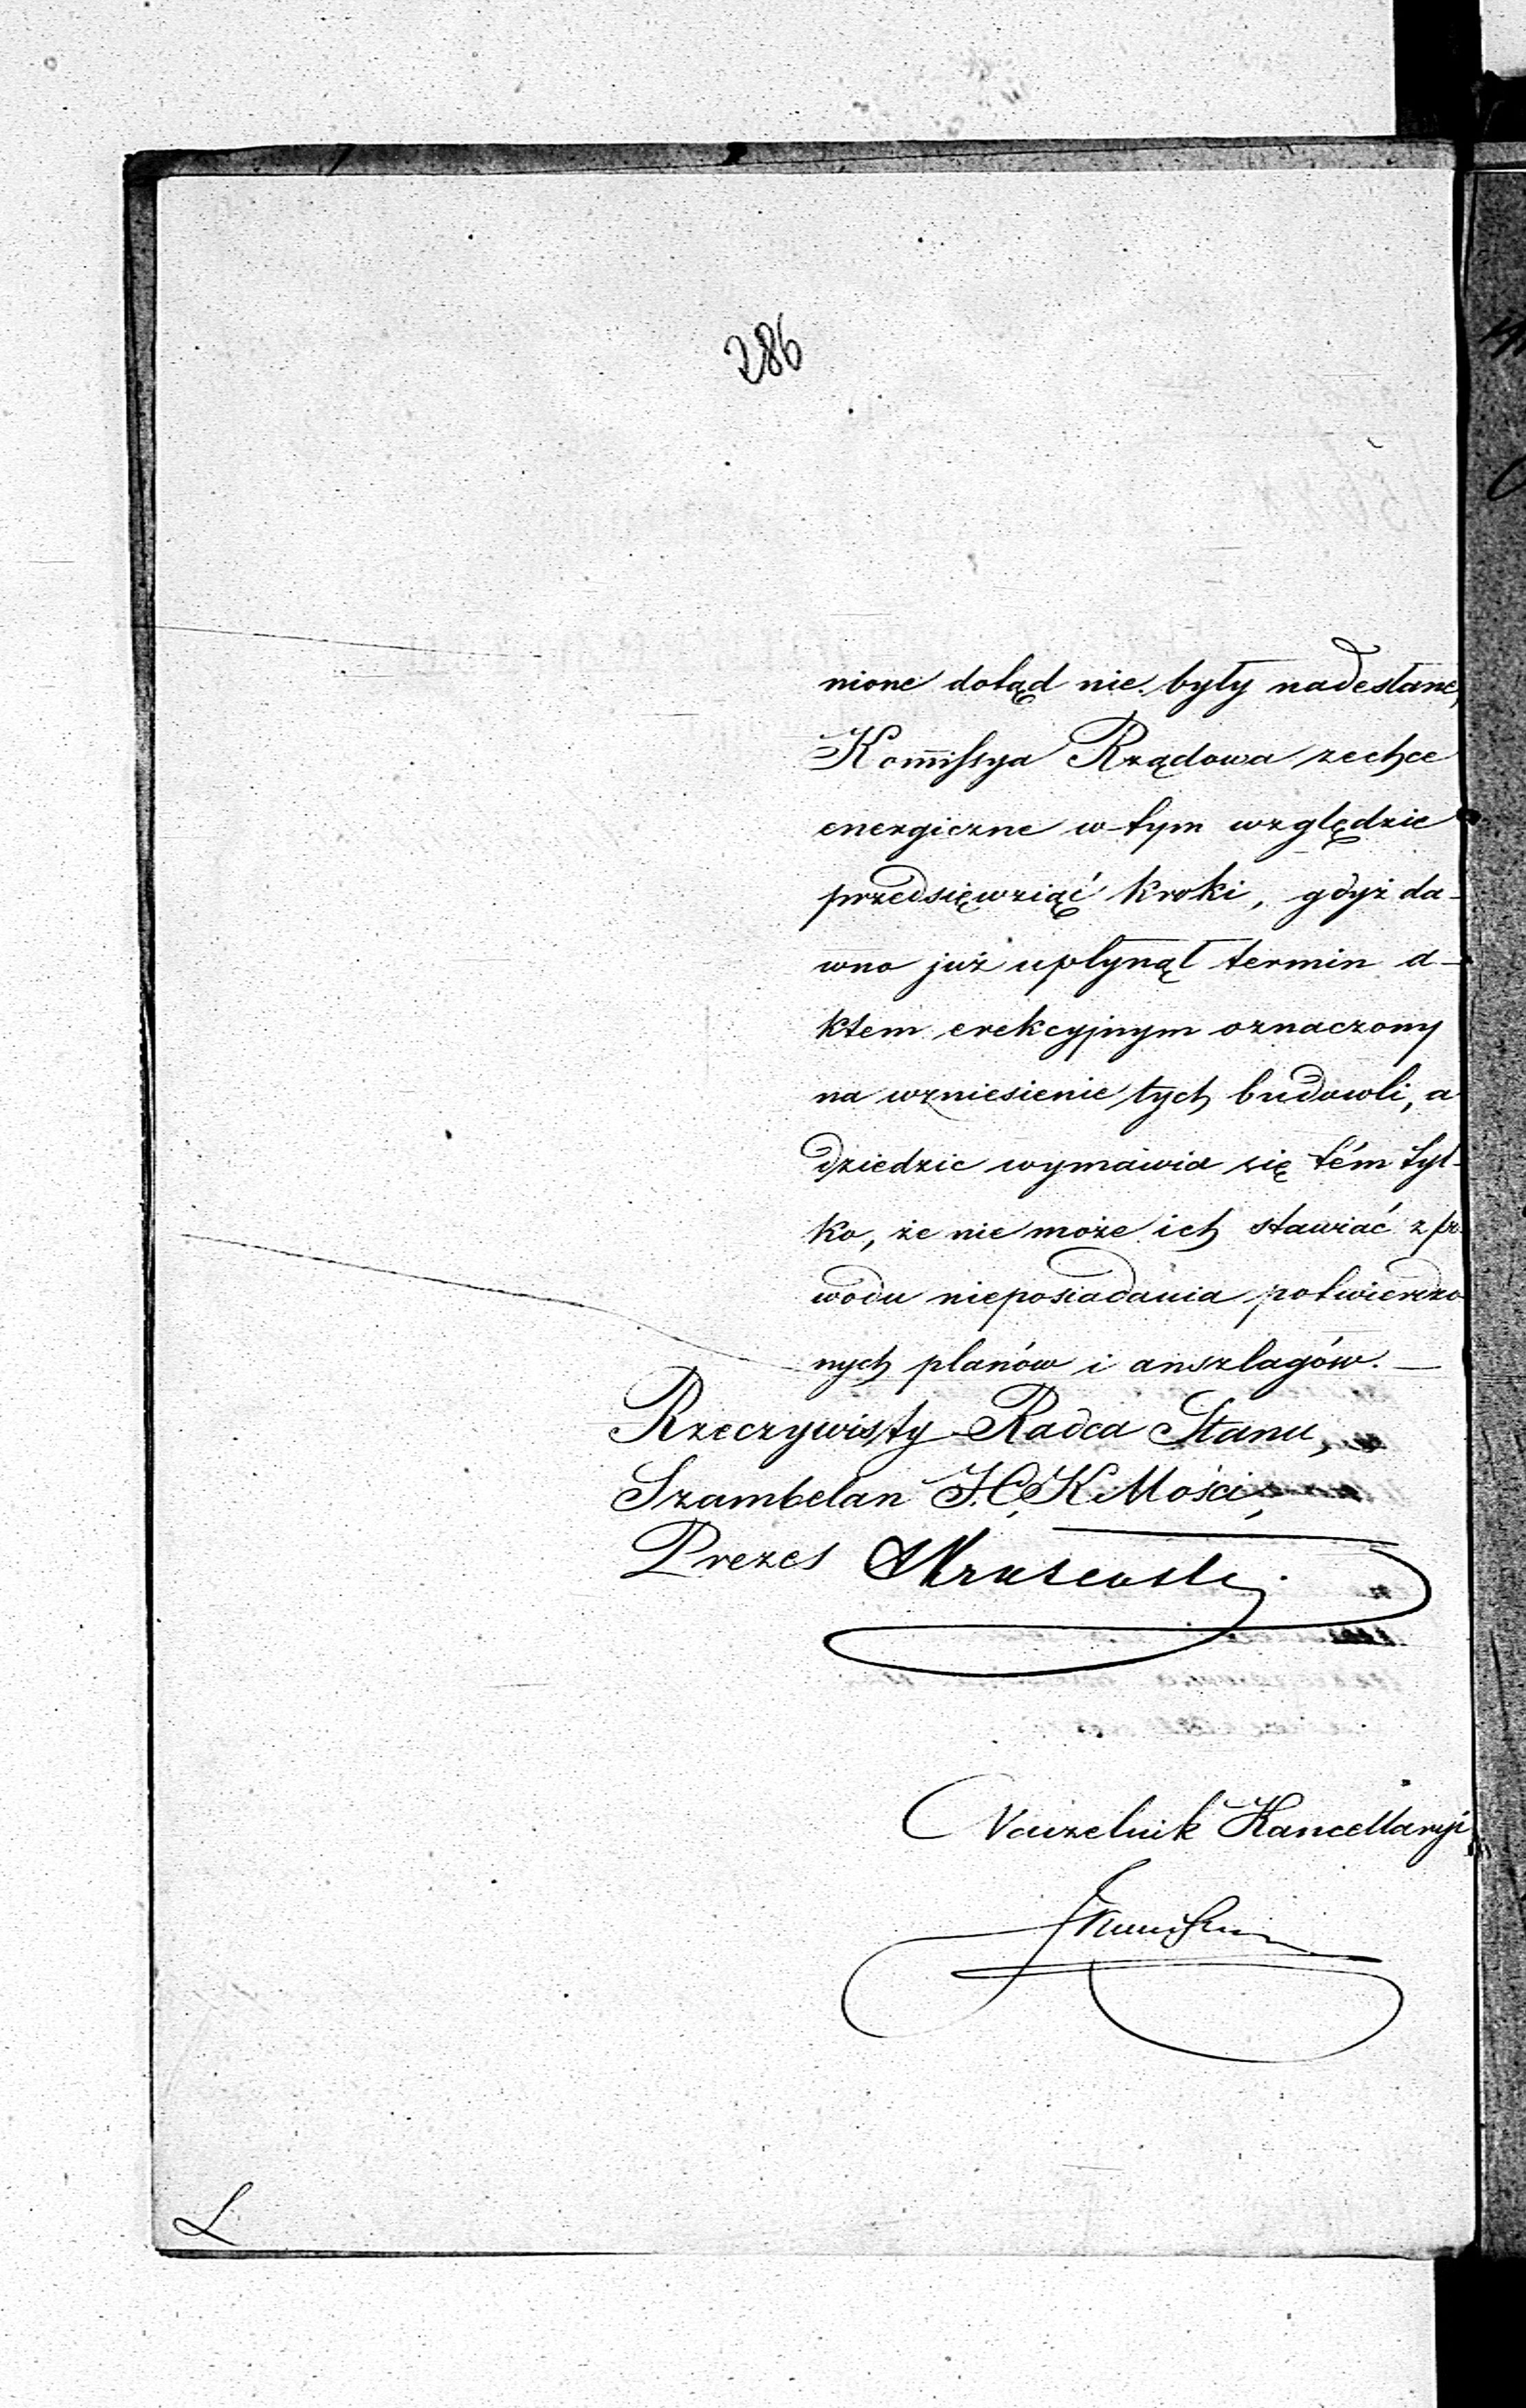 286
nione dotąd nie były nadesłane,
Kommissya Rządowa zechce
energiczne w tym względzie
przedsięwziąć kroki, gdyż da-
wno już upłynął termin a-
ktem erekcyjnym oznaczony
na wzniesienie tych budowli, a
dziedzic wymawia się tém tyl-
ko, że nie może ich stawiać z po-
wodu nieposiadania potwierdzo
nych planów i anszlagów. —
Rzeczywisty Radca Stanu,
Szambelan J. C. K. Mości,
Prezes
Naczelnik Kancellaryi
L